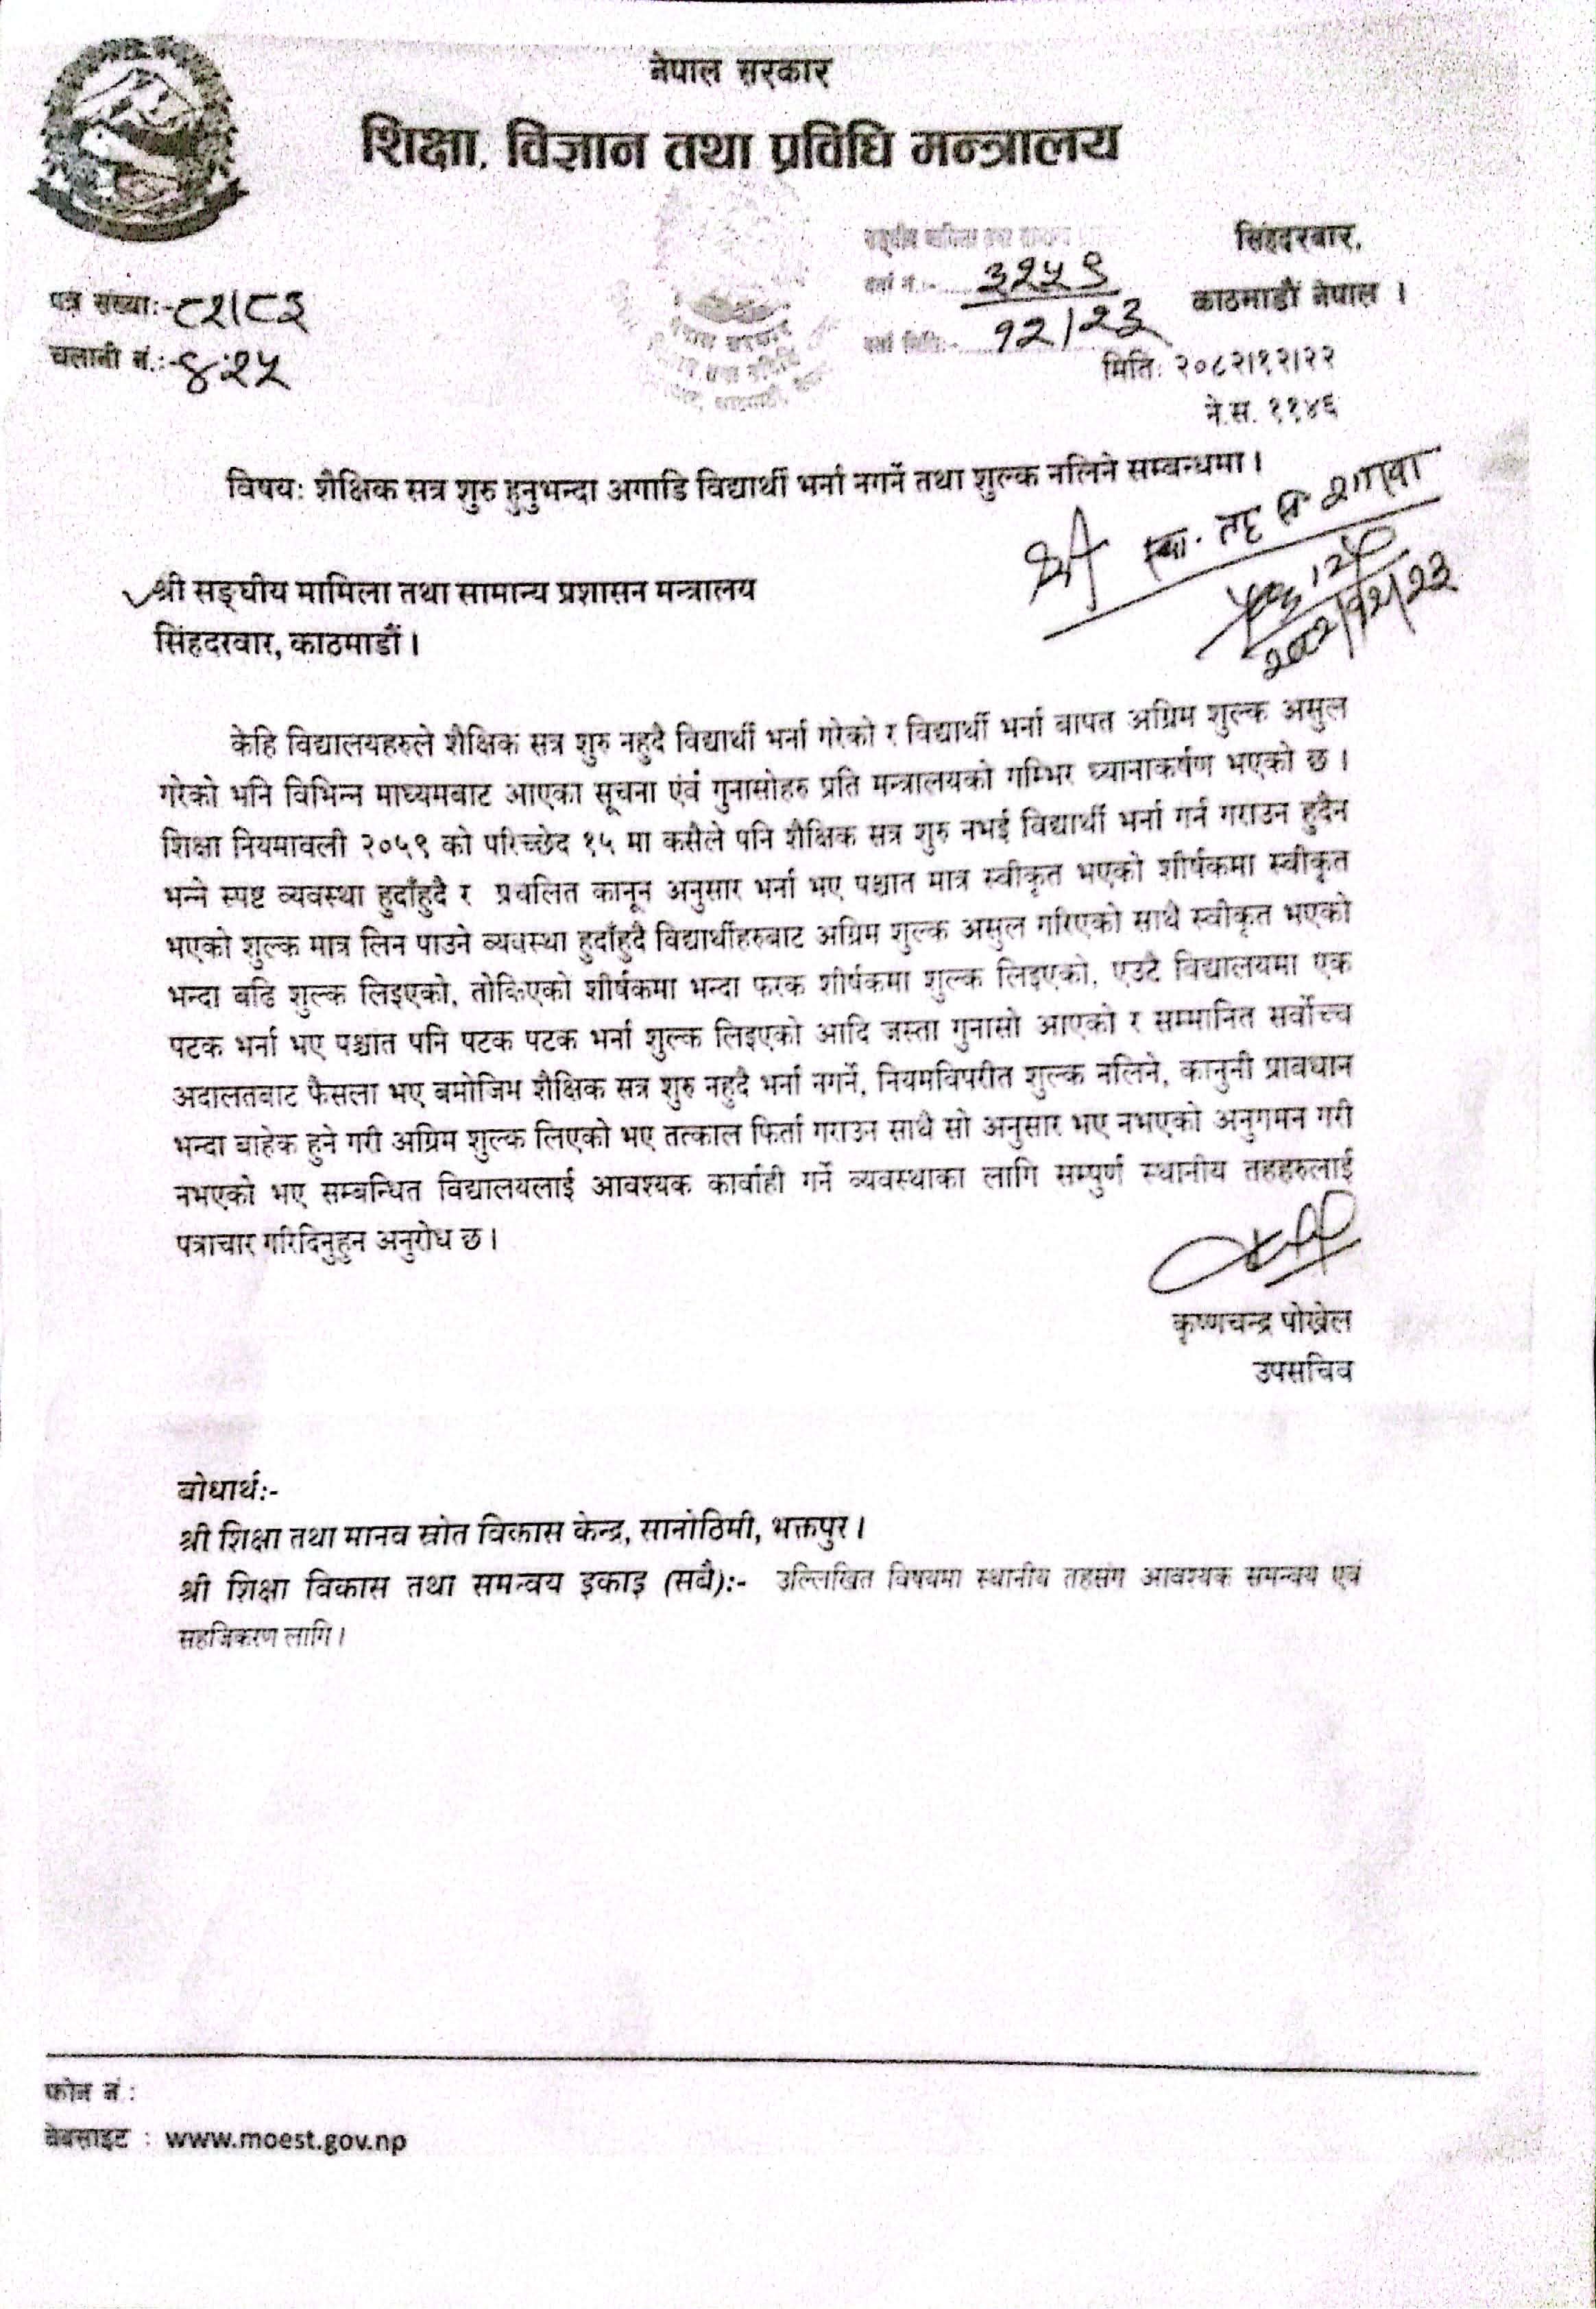 नेपाल सरकार
शिक्षा, विज्ञान तथा प्रविधि मन्त्रालय
सिंहदरबार,
काठमाडौं नेपाल ।
पत्र संख्याः-८२।८३
चलानी नं.:-४२५
दर्ता नं.:- ३२५९
दर्ता मितिः- १२/२३
मितिः २०८२।१२।२२
ने.स. ११४६
नेपाल सरकार
विषयः शैक्षिक सत्र शुरु हुनुभन्दा अगाडि विद्यार्थी भर्ना नगर्ने तथा शुल्क नलिने सम्बन्धमा ।
श्री स्था. तह शाखा
२०८२/१२/२३
श्री सङ्घीय मामिला तथा सामान्य प्रशासन मन्त्रालय
सिंहदरवार, काठमाडौं ।
केहि विद्यालयहरुले शैक्षिक सत्र शुरु नहुदै विद्यार्थी भर्ना गरेको र विद्यार्थी भर्ना वापत अग्रिम शुल्क असुल
गरेको भनि विभिन्न माध्यमबाट आएका सूचना एंवं गुनासोहरु प्रति मन्त्रालयको गम्भिर ध्यानाकर्षण भएको छ ।
शिक्षा नियमावली २०५९ को परिच्छेद १५ मा कसैले पनि शैक्षिक सत्र शुरु नभई विद्यार्थी भर्ना गर्न गराउन हुदैन
भन्ने स्पष्ट व्यवस्था हुदाँहुदै र प्रचलित कानून अनुसार भर्ना भए पश्चात मात्र स्वीकृत भएको शीर्षकमा स्वीकृत
भएको शुल्क मात्र लिन पाउने व्यवस्था हुदाँहुदै विद्यार्थीहरुबाट अग्रिम शुल्क असुल गरिएको साथै स्वीकृत भएको
भन्दा बढि शुल्क लिइएको, तोकिएको शीर्षकमा भन्दा फरक शीर्षकमा शुल्क लिइएको, एउटै विद्यालयमा एक
पटक भर्ना भए पश्चात पनि पटक पटक भर्ना शुल्क लिइएको आदि जस्ता गुनासो आएको र सम्मानित सर्वोच्च
अदालतबाट फैसला भए बमोजिम शैक्षिक सत्र शुरु नहुदै भर्ना नगर्ने, नियमविपरीत शुल्क नलिने, कानुनी प्रावधान
भन्दा बाहेक हुने गरी अग्रिम शुल्क लिएको भए तत्काल फिर्ता गराउन साथै सो अनुसार भए नभएको अनुगमन गरी
नभएको भए सम्बन्धित विद्यालयलाई आवश्यक कार्वाही गर्ने व्यवस्थाका लागि सम्पुर्ण स्थानीय तहहरुलाई
पत्राचार गरिदिनुहुन अनुरोध छ ।
कृष्णचन्द्र पोख्रेल
उपसचिव
बोधार्थः-
श्री शिक्षा तथा मानव स्रोत विकास केन्द्र, सानोठिमी, भक्तपुर ।
श्री शिक्षा विकास तथा समन्वय इकाइ (सबै):- उल्लिखित विषयमा स्थानीय तहसंग आवश्यक समन्वय एवं
सहजिकरण लागि ।
फोन नं :
वेबसाइट : www.moest.gov.np